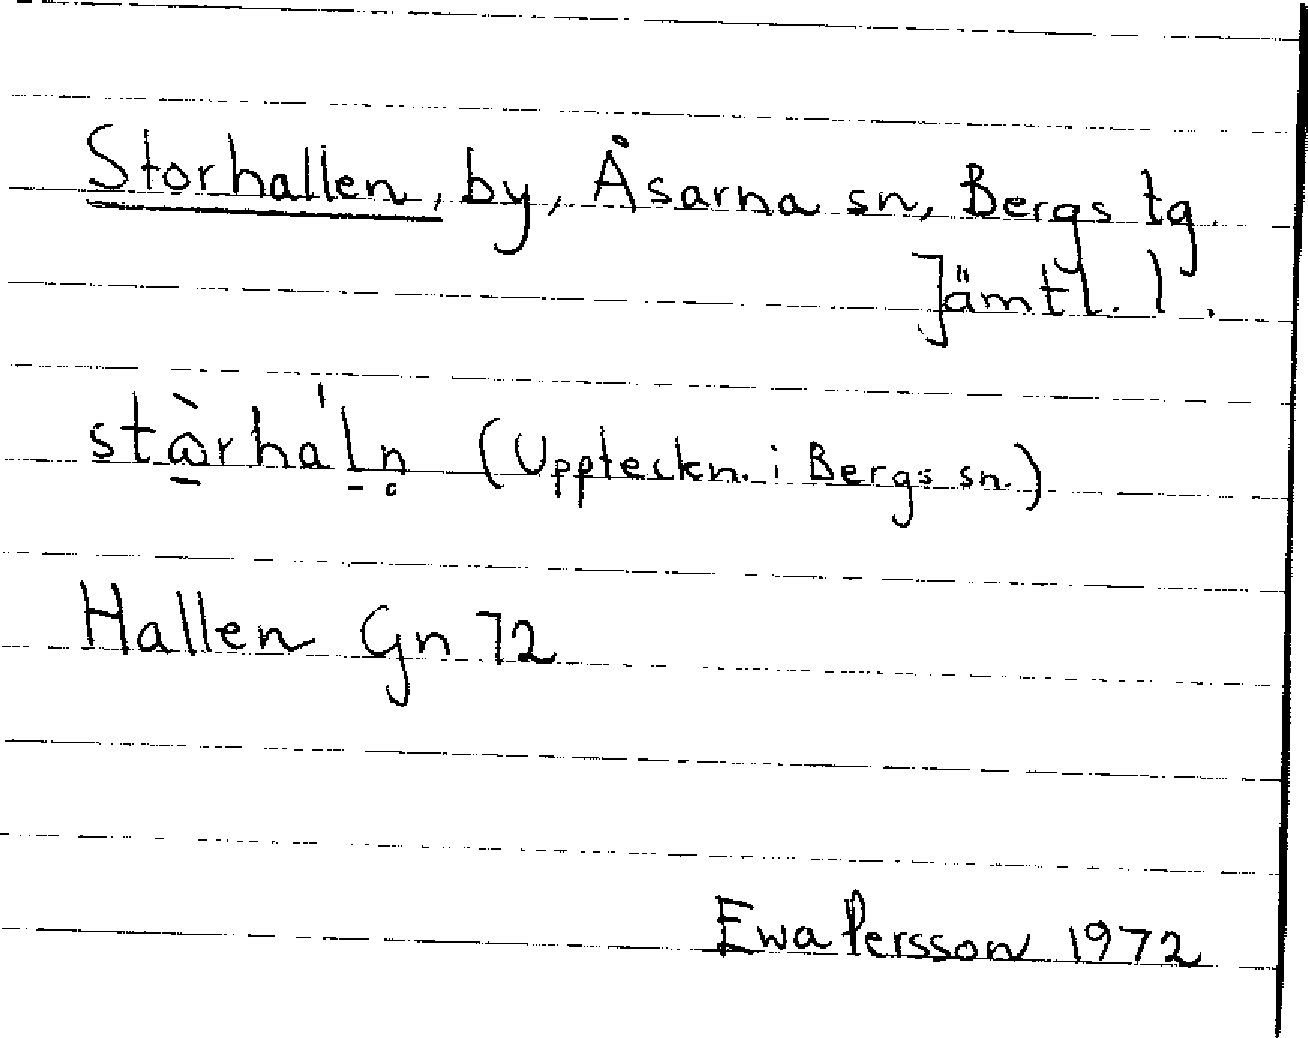 Storhallen, by, Åsarna sn, Bergs tg.
Jämtl. l.
stœ̱̀rha'ḻn̥ (Uppteckn. i Bergs sn.)
Hallen Gn 72
Ewa Persson 1972